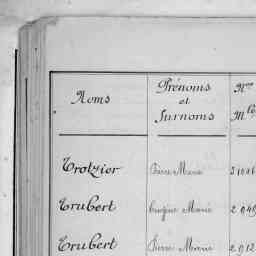 Noms
Prénoms
et
Surnoms
Nos
Mles
Trotzier
Pierre Marie
Trubert
Eugène Marie
2 949
Trubert
Pierre Marie
2 912